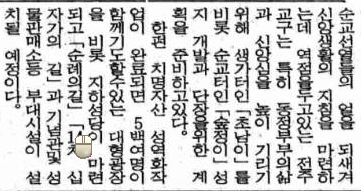 순교선열들의 얼을 되새겨
신앙생활의 지침을 마련하
는데 역점을두고있는 전주
교구는 특히 동정부부의삶
과 신앙심을 높이 기리기
위해 생가터인「초남이」를
비롯 순교터인「숲정이」성
지 개발과 단장을위한 계
획을 준비하고있다.
한편 치명자산 성역화작
업이 완료되면 5백여명이
함께기도할수있는 대형광장
을 비롯 지하성당이 마련
되고「순례의길」「14 십
자가의 길」과 기념관및 성
물판매소등 부대시설이 설
치될 예정이다.